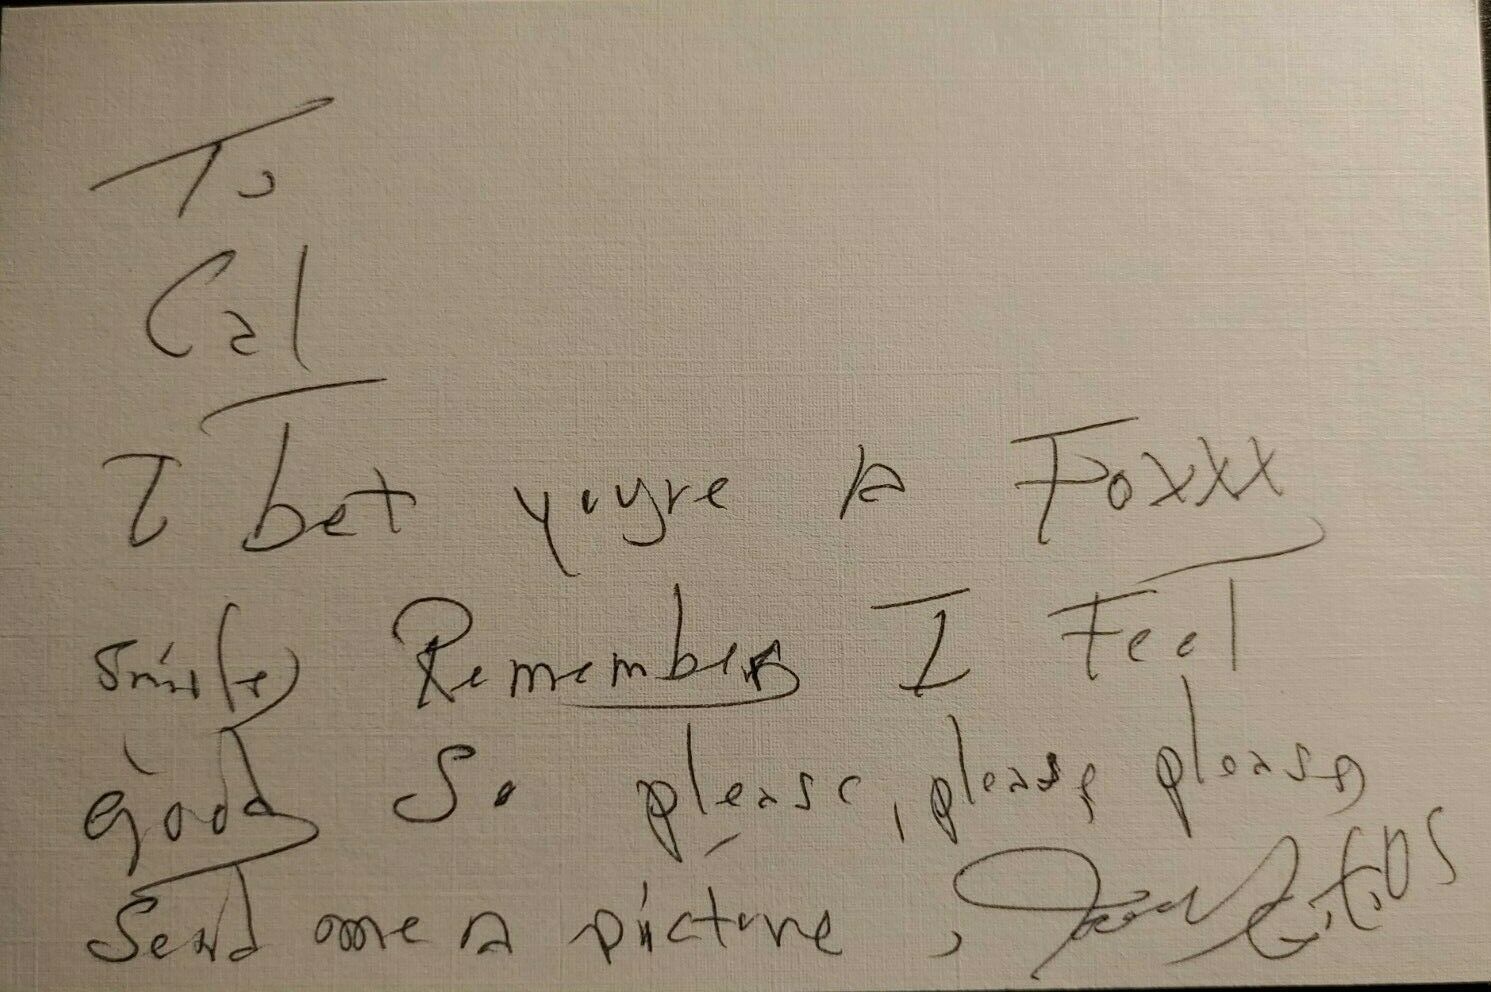 To
Cal
I bet you're a Foxxx
Smile Remember I Feel
good So please, please please
Send me a picture,